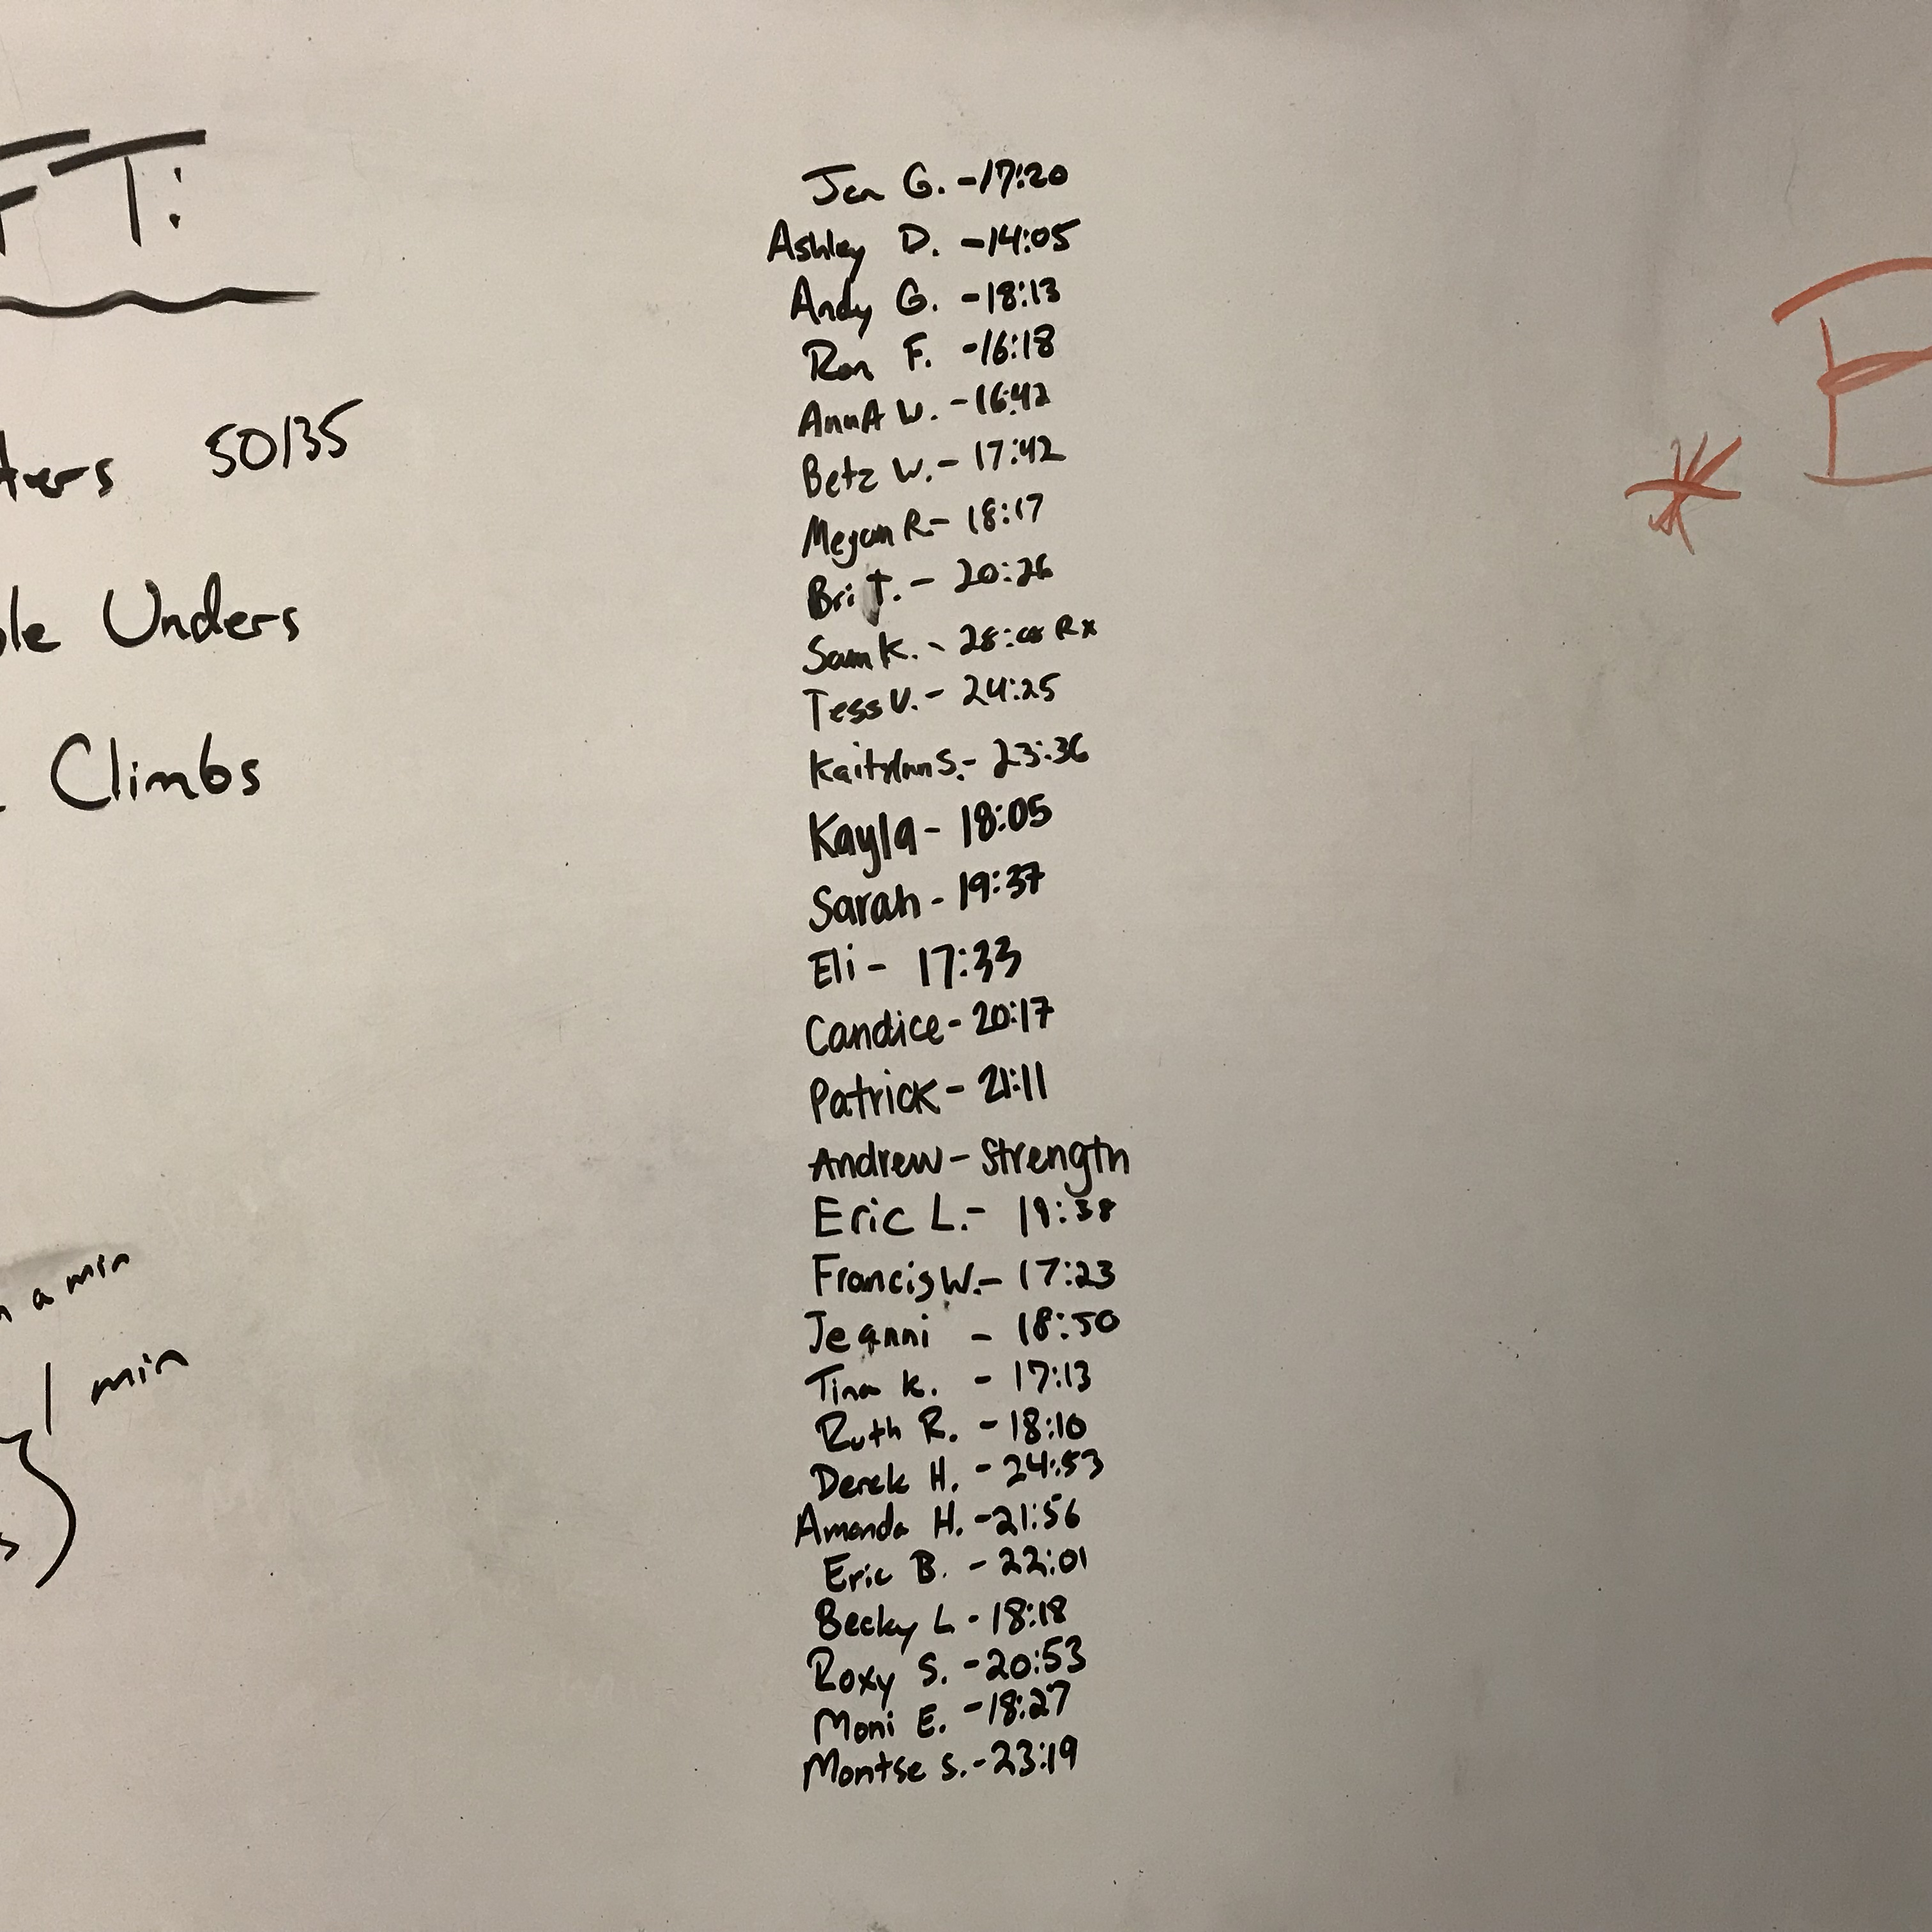 FT:
50/35
Unders
Climbs
a min
1 min
Jen G. -17:20
Ashley D. -14:05
Andy G. -18:13
Ron F. -16:18
AnnA W. -16:42
Betz W. - 17:42
Megan R - 18:17
Bri T. - 20:26
Sam K. - Rx
Tess V. - 24:25
Kaitlynn S. - 23:36
Kayla - 18:05
Sarah - 19:37
Eli - 17:33
Candice - 20:17
Patrick - 21:11
Andrew - Strength
Eric L. - 19:38
Francis W. - 17:23
Jeanni - 18:50
Tina K. - 17:13
Ruth R. - 18:10
Derek H. - 24:53
Amanda H. -21:56
Eric B. - 22:01
Becky L - 18:18
Roxy S. -20:53
Moni E. -18:27
Montse S. -23:19